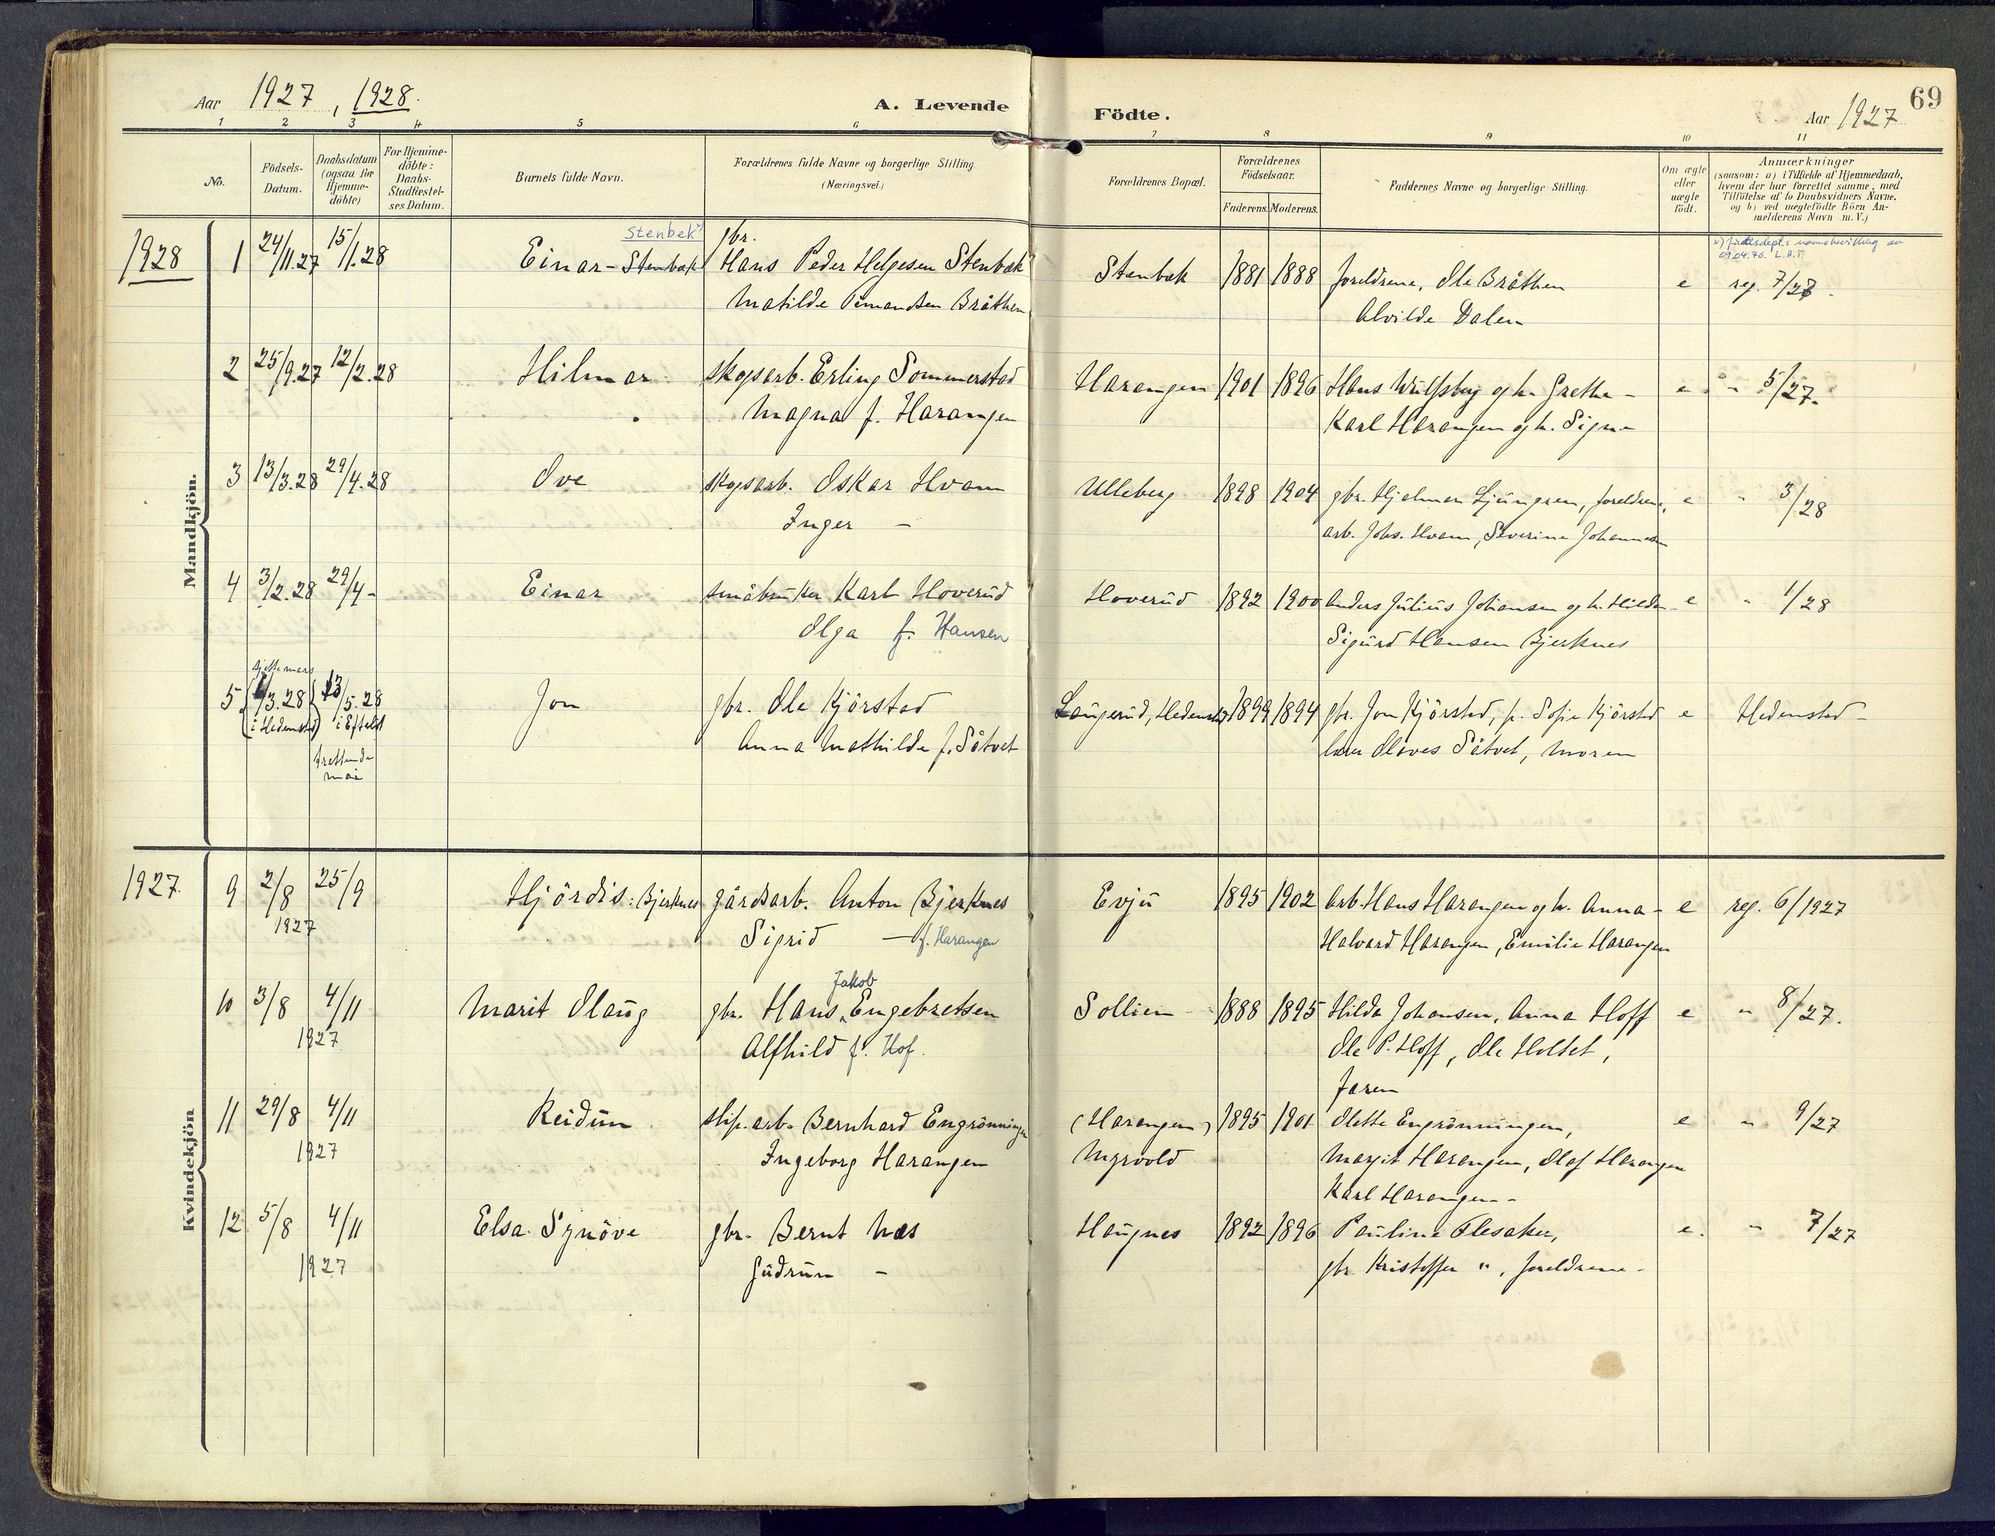 Aar 1927, 1928.
A. Levende
Födte.
Aar 1927
69
1 2 3 4 5 6 7 8 9 10 11
No.
Födsels-
Datum.
Daabsdatum
(ogsaa for
Hjemme-
döbte)
For Hjemme-
döbte:
Daabs-
Stadfæstel-
ses Datum.
Barnets fulde Navn.
Forældrenes fulde Navne og borgerlige Stilling
(Næringsvei.)
Forældrenes Bopæl.
Forældrenes
Födselsaar.
Faderens. Moderens.
Faddernes Navne og borgerlige Stilling.
Om ægte
eller
uægte
födt.
Anmærkninger
(saasom: a) i Tilfælde af Hjemmedaab,
hvem der har forrettet samme, med
Tilföielse af to Daabsvidners Navne.
og b) ved uægtefödte Börn An-
melderens Navn m. V.)
Mandkjön.
1928 1 24/11.27 15/1.28 Einar - Stenbæk Stenbek gbr. Hans Peder Helgesen Stenbæk Stenbæk 1881 1888 foreldrene, Ole Bråthen e reg. 7/27.
Matilde Bråthen Alvilde Dalen
2 25/9.27 12/2.28 Hilmar skogsarb. Erling Sommerstad Harangen 1901 1896 Hans Wulfsberg og h. Grethe - e " 5/27.
Magna f. Harangen Karl Harangen og h. Signe
3 13/3.28 29/4.28 Ove skogsarb. Oskar Hvam Ulleberg 1898 1904 gbr. Hjelmar Ljungren, foreldrene, e " 3/28
Inger - arb. Johs. Hvam, Severine Johannesen
4 3/2.28 29/4 - Einar småbruker Karl Hoverud Hoverud 1892 1900 Anders Julius Johansen og h. Hilda e " 1/28
Olga f. Hansen Sigurd Hansen Bjerknes
5 3.28 13/5.28 Jon gbr. Ole Kjörstad Laugerud, Hedenstad 1899 1894 gbr. Jon Kjörstad, fr. Sofie Kjörstad e Hedenstad -
i Hedenstad i Efteløt Anna Mathilde f. Såtvet lærer Olaves Såtvet, moren
trettende
mai
Kvindekjön
1927. 9 2/8 25/9 Hjördis: Bjerknes gårdsarb. Anton Bjerknes Evju 1895 1902 Arb. Hans Harangen og h. Anna - e reg. 6/1927
1927 Sigrid - f. Harangen Halvard Harangen, Emilie Harangen
10 3/8 4/11 Marit Olaug gbr. Hans Jakob Engebretsen Sollien 1888 1895 Hilda Johansen, Anna Hoff e " 8/27.
1927 Alfhild f. Hof. Ole P. Hoff, Ole Holtet,
faren
11 29/8 4/11 Reidun slip.arb. Bernhard Engrönningen (Harangen) 1895 1901 Olette Engrönningen, e " 9/27
1927 Ingeborg Harangen Myrvold Margit Harangen, Olaf Harangen
Karl Harangen -
12 5/8 4/11 Elsa Synöve gbr. Bernt Næs Haugnes 1892 1896 Pauline Flesaker, e. " 7/27
1927 Gudrun - gbr. Kristoffer ", foreldrene -